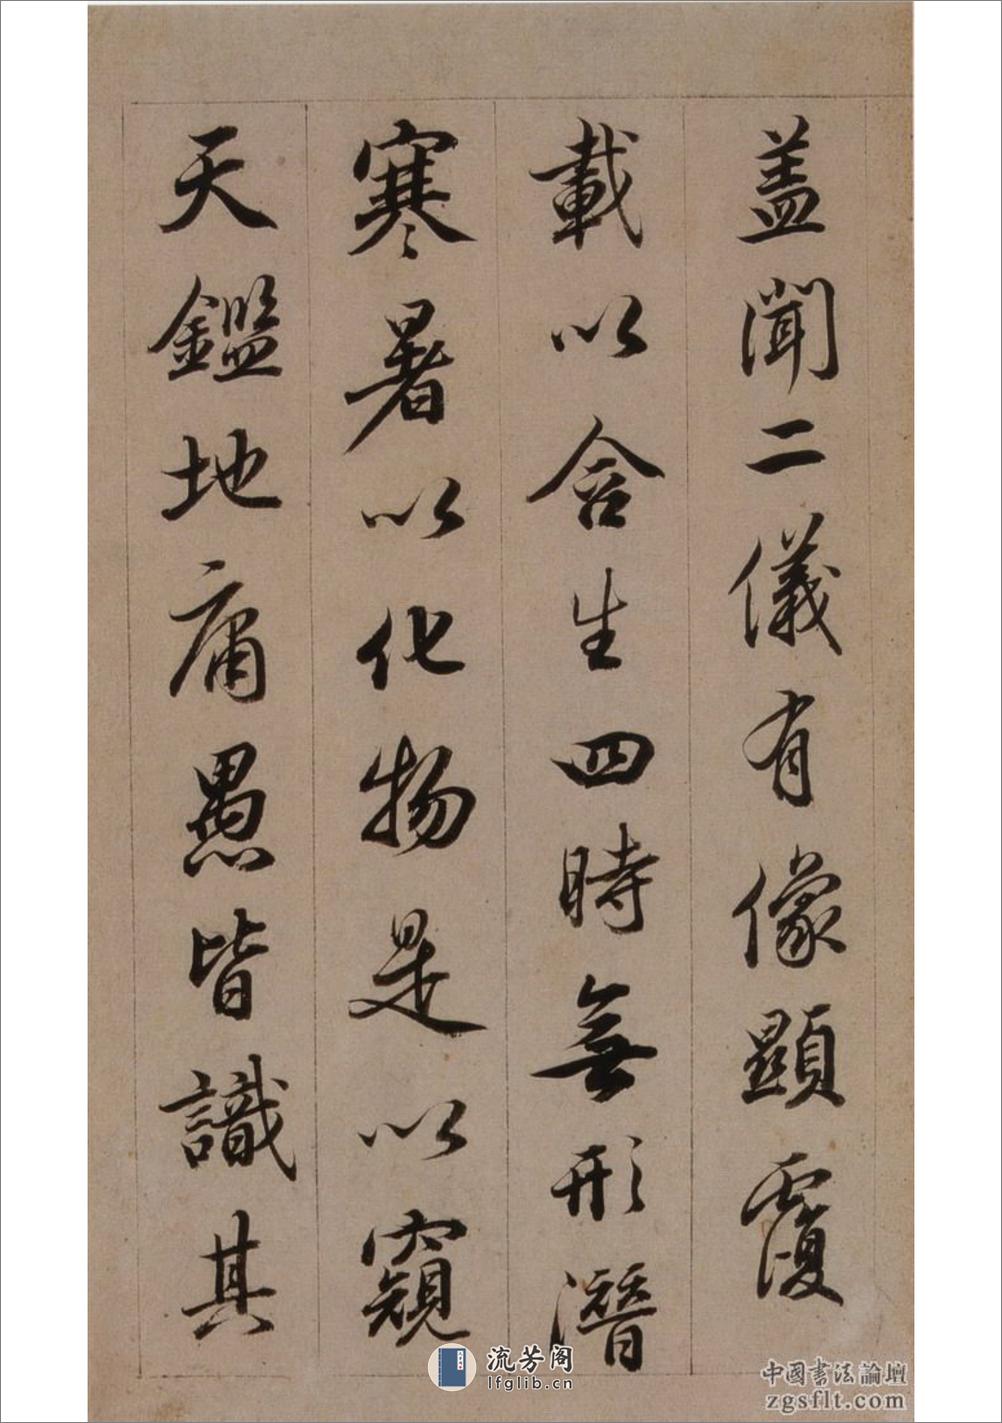 盖聞二儀有像顯覆
載以含生四時無形潛
寒暑以化物是以窺
天鑑地庸愚皆識其
流芳阁
lfglib.cn
中國书法論壇
zgsflt.com